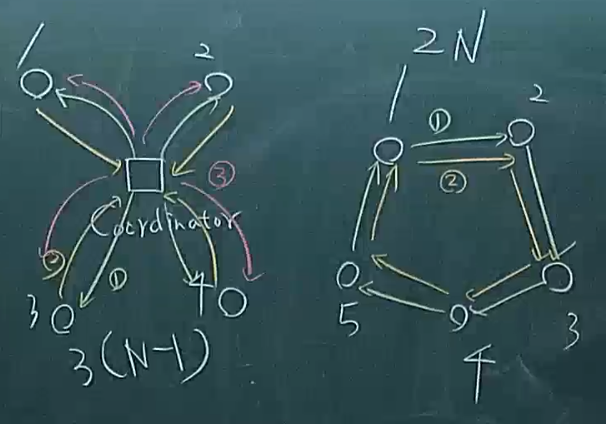 1
2
③
Coordinator
②
①
3
4
3(N-1)
2N
1
2
①
②
5
3
4